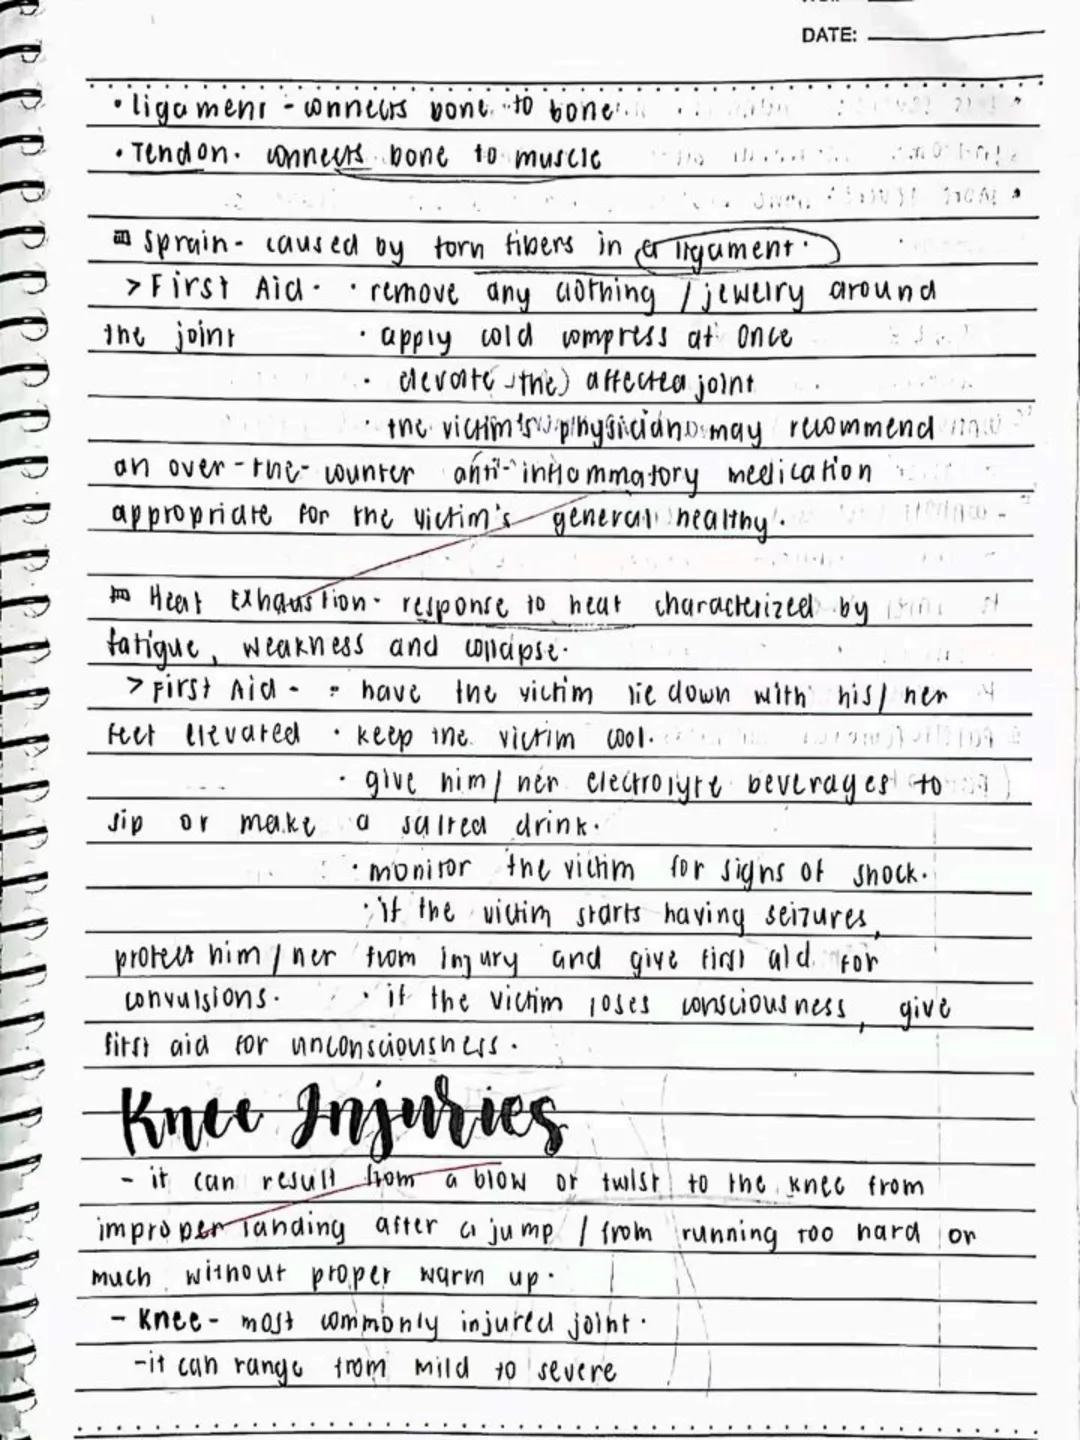 DATE:
• ligament - connects bone to bone
• Tendon - connects bone to muscle
Sprain - caused by torn fibers in a ligament.
> First Aid - • remove any clothing / jewelry around
the joint • apply cold compress at once
• elevate the affected joint
• the victim's physician may recommend
an over-the-counter anti-inflammatory medication
appropriate for the victim's general healthy.
Heat Exhaustion - response to heat characterized by
fatigue, weakness and collapse.
> First Aid - • have the victim lie down with his/her
feet elevated • keep the victim cool.
• give him/her electrolyte beverages to
sip or make a salted drink.
• monitor the victim for signs of shock.
• if the victim starts having seizures,
protect him/her from injury and give first aid for
convulsions. • if the victim loses consciousness, give
first aid for unconsciousness.
Knee Injuries
- it can result from a blow or twist to the knee from
improper landing after a jump / from running too hard or
much without proper warm up.
- Knee - most commonly injured joint.
- it can range from mild to severe